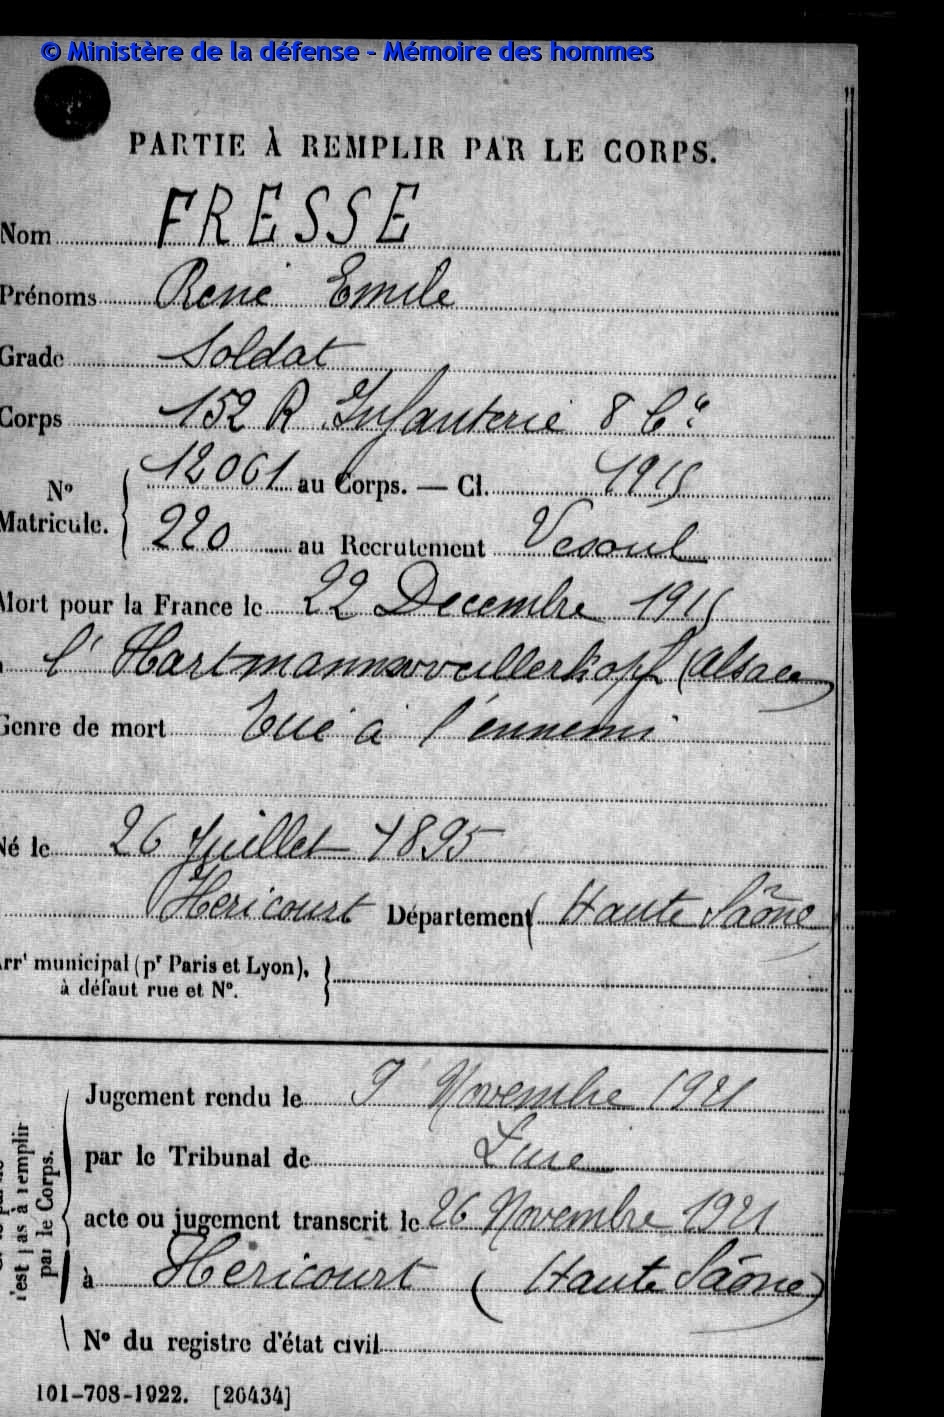 © Ministère de la défense - Mémoire des hommes
PARTIE À REMPLIR PAR LE CORPS.
Nom FRESSE
Prénoms René Emile
Grade Soldat
Corps 152 R. Infanterie 8 Cie
No Matricule. 12061 au Corps. — Cl. 1915
220 au Recrutement Vesoul
Mort pour la France le 22 Decembre 1915
l'Hartmannsweillerkopf (Alsace)
Genre de mort Tué à l'ennemi
Né le 26 Juillet 1895
Hericourt Département (Haute Saône
Arrt municipal (pr Paris et Lyon),
à défaut rue et No.
Jugement rendu le 9 Novembre 1921
par le Tribunal de Lure
acte ou jugement transcrit le 26 Novembre 1921
à Hericourt (Haute Saône)
No du registre d'état civil
n'est pas à remplir
par le Corps.
101-708-1922. [26434]